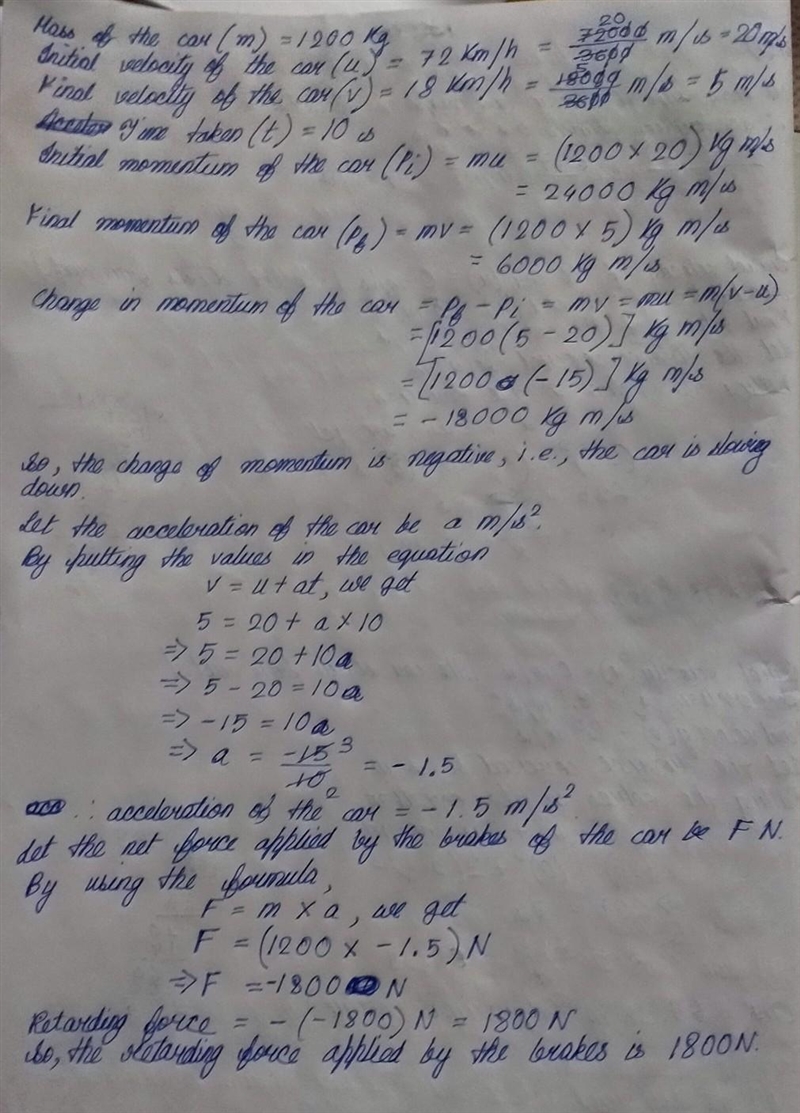 Mass of the car (m) = 1200 Kg
Initial velocity of the car (u) = 72 Km/h = 72000/3600 m/s = 20 m/s
Final velocity of the car (v) = 18 Km/h = 18000/3600 m/s = 5 m/s
Time taken (t) = 10 s
Initial momentum of the car (Pi) = mu = (1200 x 20) Kg m/s
= 24000 Kg m/s
Final momentum of the car (Pf) = mv = (1200 x 5) Kg m/s
= 6000 Kg m/s
Change in momentum of the car = Pf - Pi = mv = mu = m(v-u)
= [1200 (5 - 20)] Kg m/s
= [1200 (-15)] Kg m/s
= - 18000 Kg m/s
So, the change of momentum is negative, i.e., the car is slowing
down.
Let the acceleration of the car be a m/s².
By putting the values in the equation
v = u + at, we get
5 = 20 + a x 10
=> 5 = 20 + 10a
=> 5 - 20 = 10a
=> -15 = 10a
=> a = -15/10 3/2 = - 1.5
∴ acceleration of the car = - 1.5 m/s²
Let the net force applied by the brakes of the car be F N.
By using the formula,
F = m x a, we get
F = (1200 x - 1.5) N
=> F = -1800 N
Retarding force = - (-1800) N = 1800 N
So, the retarding force applied by the brakes is 1800 N.